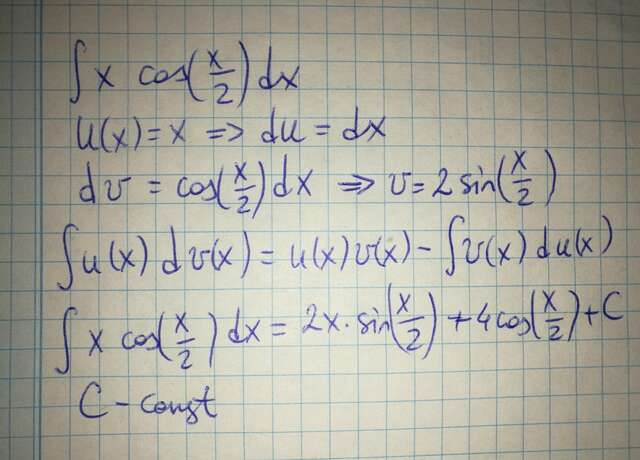 ∫ x cos(x/2) dx
u(x) = x => du = dx
dv = cos(x/2) dx => v = 2 sin(x/2)
∫ u(x) dv(x) = u(x)v(x) - ∫ v(x) du(x)
∫ x cos(x/2) dx = 2x · sin(x/2) + 4cos(x/2) + C
C - const